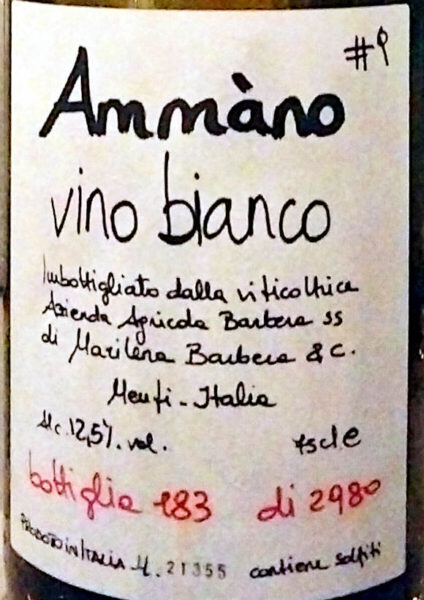 #9
Ammàno
vino bianco
Imbottigliato dalla viticoltrice
Azienda Agricola Barbera ss
di Marilena Barbera & C.
Menfi - Italia
Alc. 12,5%. vol. 75cl e
bottiglia 183 di 2980
PRODOTO IN ITALIA L. 21355 contiene solfiti